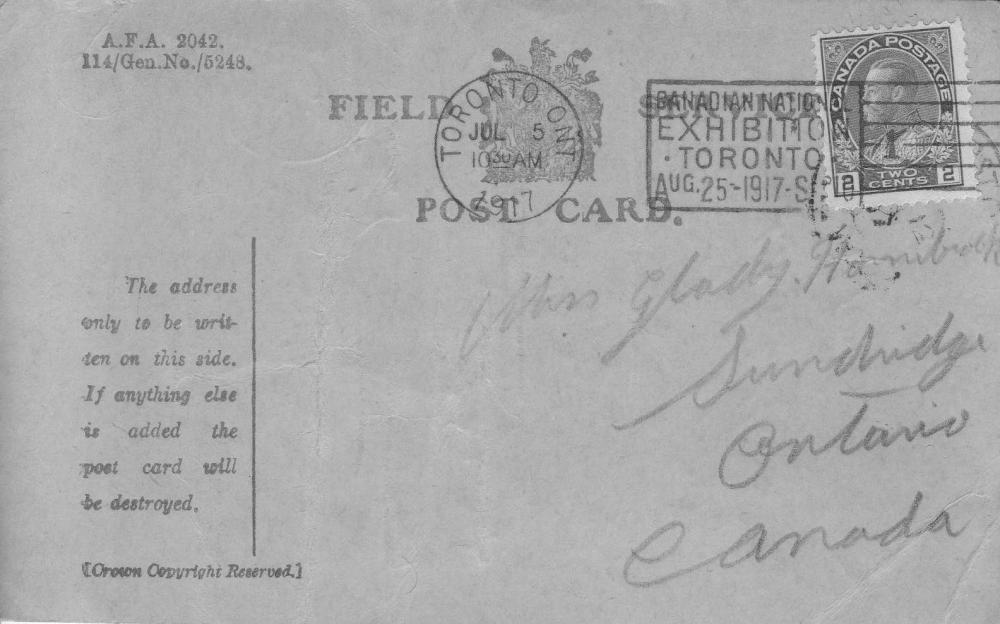 A.F.A. 2042.
114/Gen.No./5248.
FIELD SERVICE
POST CARD.
TORONTO ONT
JUL 5
10 30 AM
1917
CANADIAN NATION
EXHIBITIO
· TORONTO
AUG. 25-1917-S
CANADA POSTAGE
1
2 TWO CENTS 2
The address
only to be writ-
ten on this side.
If anything else
is added the
post card will
be destroyed.
[Crown Copyright Reserved.]
Miss Gladys
Sundridge
Ontario
Canada